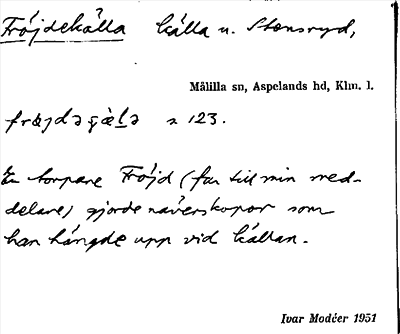 Fröjdekälla källa n. Stensryd,
Målilla sn, Aspelands hd, Klm. l.
frøjdəçæ̀lə s 123.
En torpare Fröjd (far till min med-
delare) gjorde näverskopor som
han hängde upp vid källan.
Ivar Modéer 1951